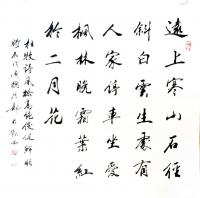 遠上寒山石徑
斜白雲生處有
人家停車坐愛
楓林晚霜葉紅
於二月花
杜牧詩風格高